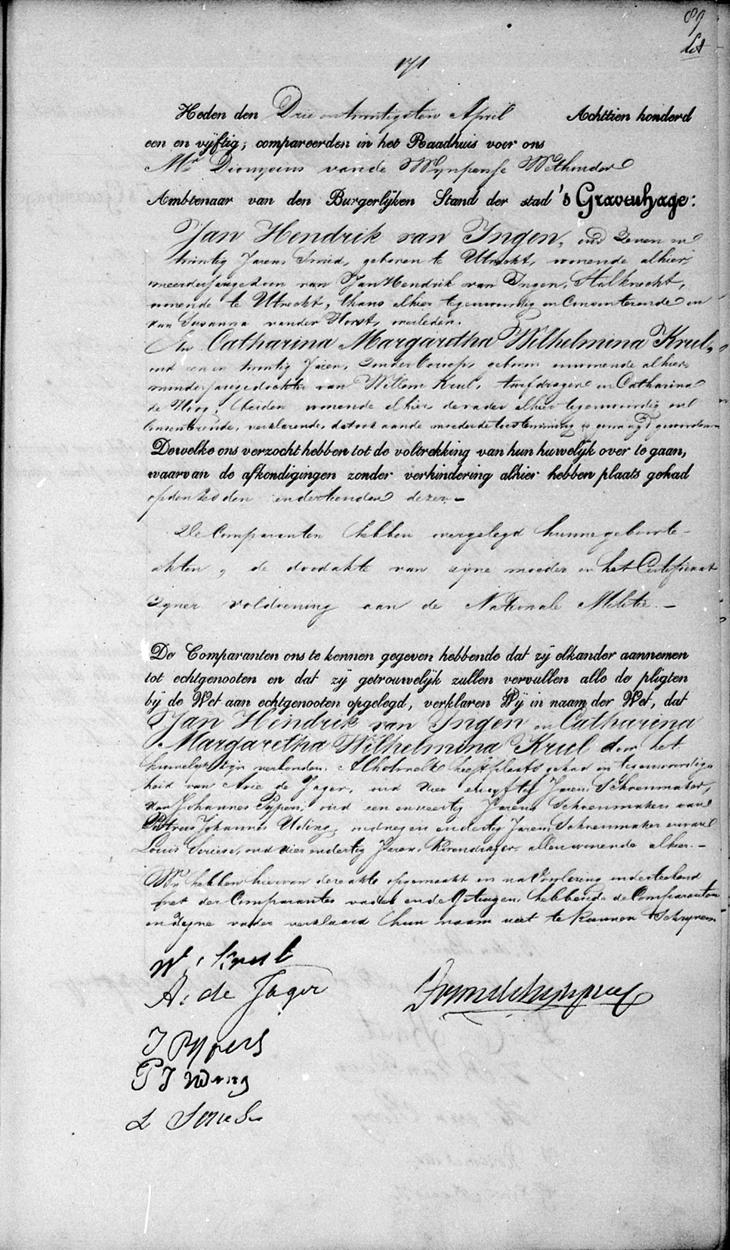 89
171
Heden den Drie en twintigsten April Achttien honderd
een en vijftig; compareerden in het Raadhuis voor ons
Mr Dionysius van de Wynpersse Wethouder
Ambtenaar van den Burgerlijken Stand der stad 's Gravenhage:
Jan Hendrik van Ingen, oud Zeven en
twintig Jaren, Smid, geboren te Utrecht, wonende alhier,
meerderjarige zoon van Jan Hendrik van Ingen, Stalknecht,
wonende te Utrecht, thans alhier tegenwoordig en Consenterende en
van Susanna vander Horst, overleden.
En Catharina Margaretha Wilhelmina Krul,
oud een en twintig Jaren, Zonder beroep, geboren en wonende alhier,
minderjarige dochter van Willem Krul, turfdrager en Catharina
de Hoog, beiden wonende alhier de vader alhier tegenwoordig en
Consenterende, verklarende dat ook aan de moeder de toestemming is gevraagd geworden
Dewelke ons verzocht hebben tot de voltrekking van hun huwelijk over te gaan,
waarvan de afkondigingen zonder verhindering alhier hebben plaats gehad
op den dezer. –
De Comparanten hebben overgelegd hunne geboorte-
akten, de doodakte van zijne moeder en het Certificaat
Zyner voldoening aan de Nationale Militie. –
De Comparanten ons te kennen gegeven hebbende dat zij elkander aannemen
tot echtgenooten en dat zij getrouwelijk zullen vervullen alle de pligten
bij de Wet aan echtgenooten opgelegd, verklaren Wij in naam der Wet, dat
Jan Hendrik van Ingen en Catharina
Margaretha Wilhelmina Krul door het
huwelijk zijn verbonden. Alhetwelk heeft plaats gehad in tegenwoordig-
heid van Arie de Jager, oud vier en vyftig Jaren, Schoenmaker,
van Johannes Pypers, oud een en veertig Jaren Schoenmaker, van
Petrus Johannes Uding, oud negen en dertig Jaren, Schoenmaker en van
Louis Seruse, oud vier en dertig Jaren, Korendrager, allen wonende alhier. –
Wy hebben hiervan deze akte opgemaakt en na voorlezing onderteekend
met der Comparantes vader en de Getuigen, hebbende de Comparanten
en Zyne vader verklaard hun naam niet te kunnen Schryven
W: Krul
A: de Jager
J Pypers
P J Uding